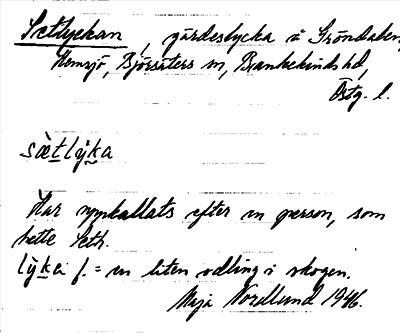 Setlyckan, gärdeslycka i Gröndalen,
Hemsjö, Björsäters sn, Bankekinds hd,
Östg. l.
sæ̀tlỳka
Har uppkallats efter en person, som
hette Seth.
lỳka f. = en liten odling i skogen.
Maja Nordlund 1946.